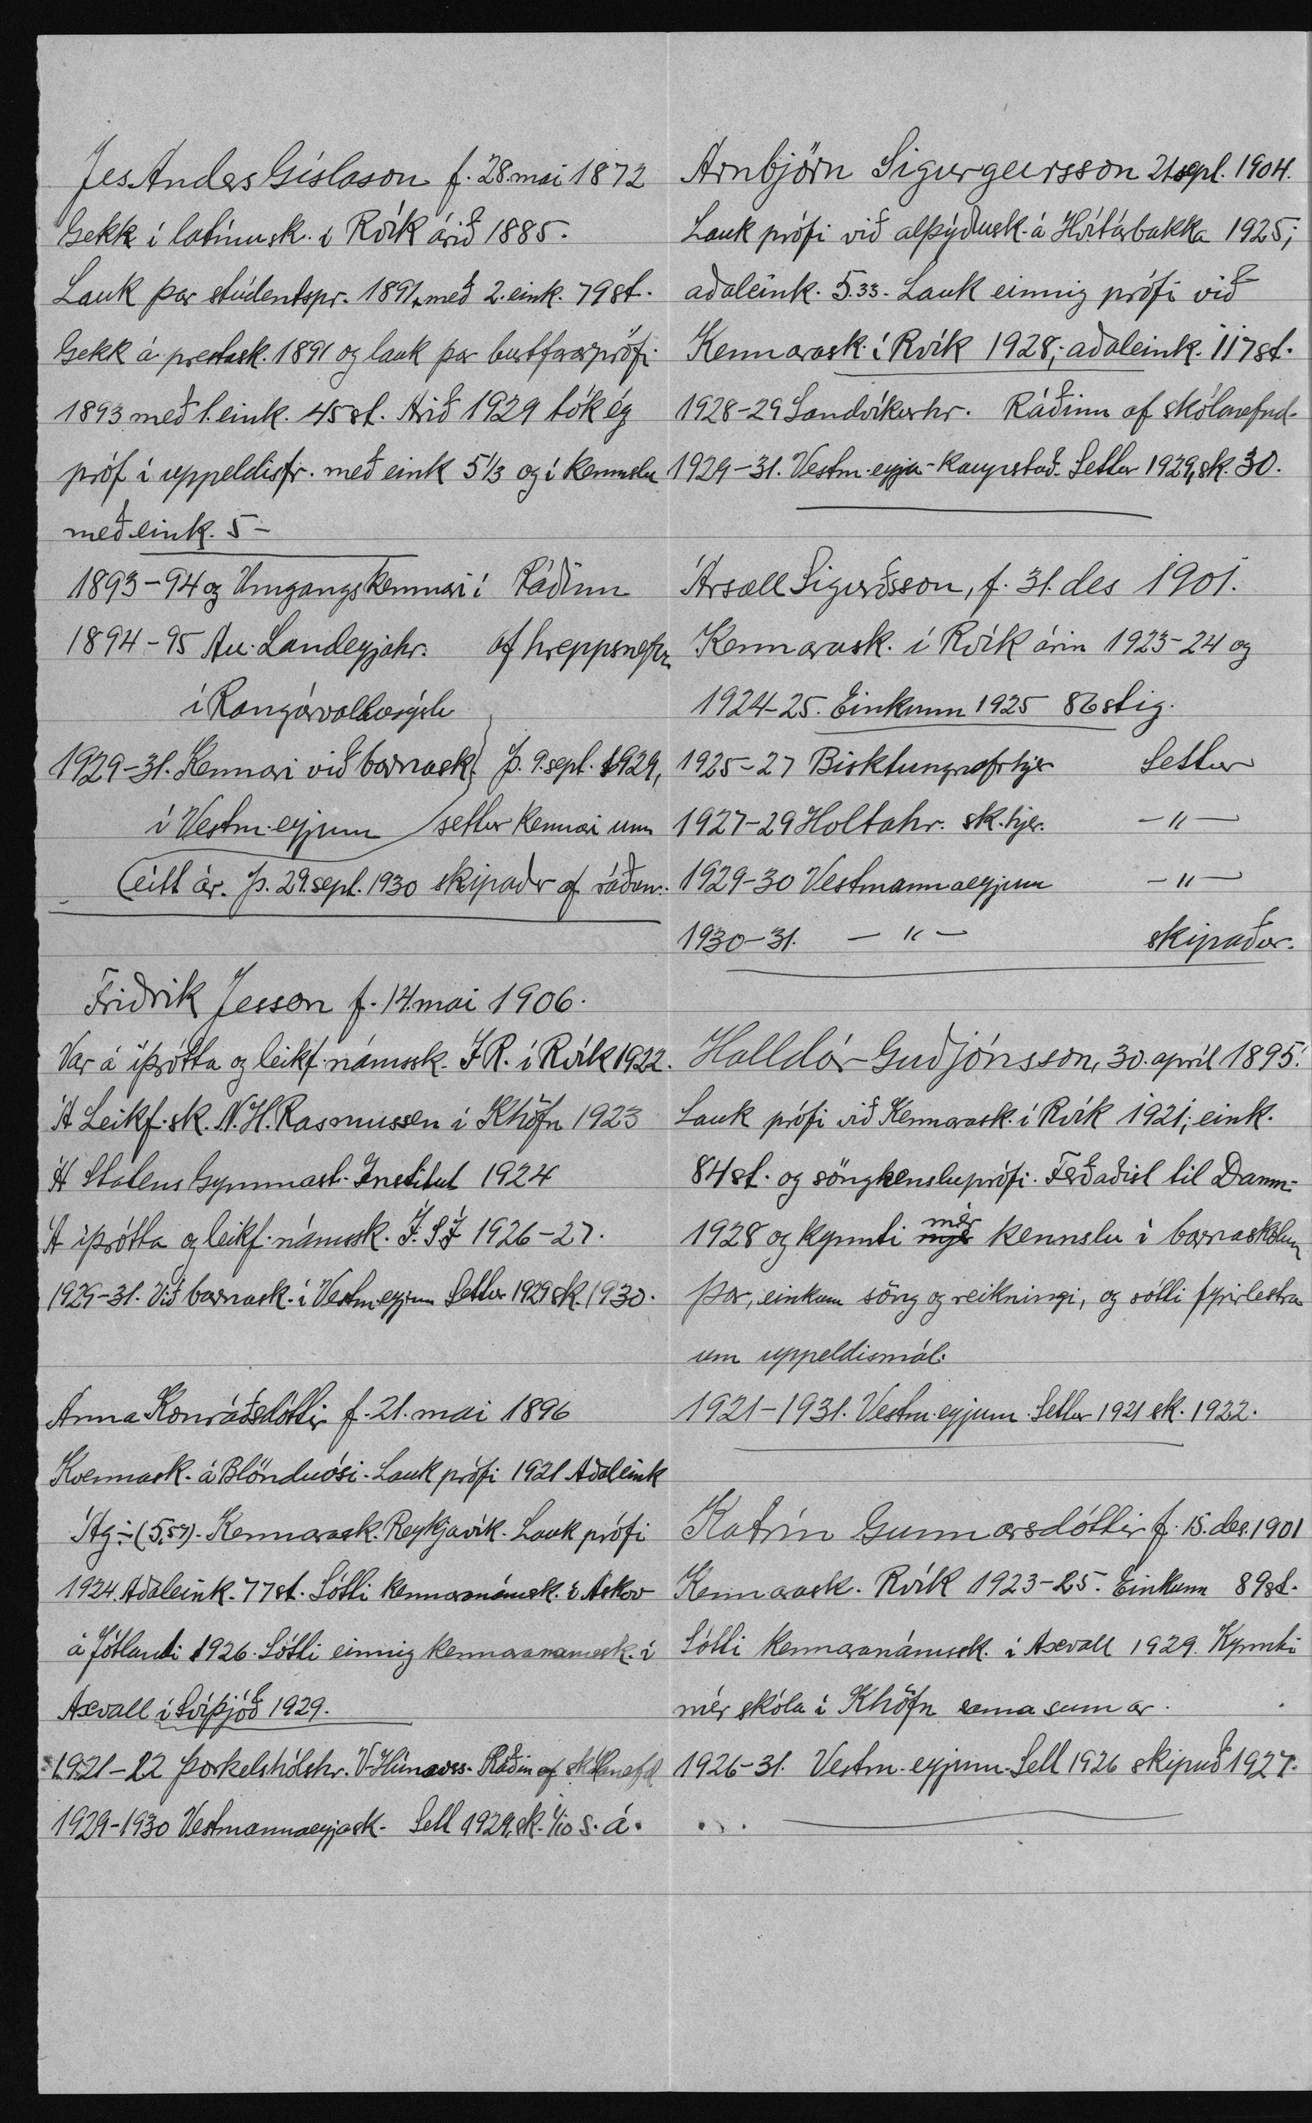 Jes Anders Gíslason f. 28. mai 1872
Gekk í latínusk. í Rvík árið 1885.
Lauk þar stúdentspr. 1891, með 2. eink. 79 st.
Gekk á prestask. 1891 og lauk þar burtfararprófi
1893 með 1. eink. 45 st. Árið 1929 tók ég
próf í uppeldisfr. með eink 5 1/3 og í kennslu
með eink. 5 –
1893–94 og Umgangskennari í Ráðinn
1894–95 Au. Landeyjahr. af hreppsnefn
í Rangárvallasýslu
1929–31. Kennari við barnask. þ. 9. sept. 1929,
í Vestm.eyjum settur kennari um
eitt ár. Þ. 29. sept. 1930 skipaðr af ráðun.
Friðrik Jesson f. 14. mai 1906.
Var á íþrótta og leikf. námssk. Í.R. í Rvík 1922.
Á Leikf.sk. N. H. Rasmussen í Khöfn 1923
Á Statens Gymnast. Institut 1924
Á íþrótta og leikf. námssk. Í.S.Í 1926–27.
1929–31. Við barnask. í Vestm.eyjum Settur 1929 sk. 1930.
Anna Konráðsdóttir f. 21. mai 1896
Kvennask. á Blönduósi. Lauk prófi 1921 Aðaleink
Ág ÷ (5,57). Kennarask. Reykjavík. Lauk prófi
1924. Aðaleink. 77 st. Sótti kennaranámsk. í Askov
á Jótlandi 1926. Sótti einnig kennaranamssk. í
Axvall í Svíþjóð 1929.
1921–22 Þorkelshólshr. V-Húnavss. Ráðin af skólanefd
1929–1930 Vestmannaeyjask. Sett 1929, sk. 1/10 s. á.
Arnbjörn Sigurgeirsson 21 sept. 1904.
Lauk prófi við alþýðusk. á Hvítárbakka 1925;
aðaleink. 5.33. Lauk einnig prófi við
Kennarask. í Rvík 1928; aðaleink. 117 st.
1928–29 Sandvíkurhr. Ráðinn af skólanefnd.
1929–31. Vestm.eyja-kaupstað. Settur 1929, sk. 30.
Ársæll Sigurðsson, f. 31. des 1901.
Kennarask. í Rvík árin 1923–24 og
1924–25. Einkunn 1925 86 stig.
1925–27 Bisktungnafrhjer Settur
1927–29 Holtahr. sk.hjer. –〃–
1929–30 Vestmannaeyjum –〃–
1930–31. –〃– skipaður.
Halldór Guðjónsson, 30. apríl 1895.
Lauk prófi við Kennarask. í Rvík 1921; eink.
84 st. og söngkensluprófi. Ferðaðist til Danm.
mér
1928 og kynnti kennslu í barnaskólum
þar, einkum söng og reikningi, og sótti fyrirlestra
um uppeldismál.
1921–1931. Vestm.eyjum. Settur 1921 sk. 1922.
Katrín Gunnarsdóttir f. 15. des. 1901
Kennarask. Rvík 1923–25. Einkunn 89 st.
Sótti kennaranámssk. í Axvall 1929. Kynnti
mér skóla í Khöfn sama sumar.
1926–31. Vestm.eyjum. Sett 1926 skipuð 1927.